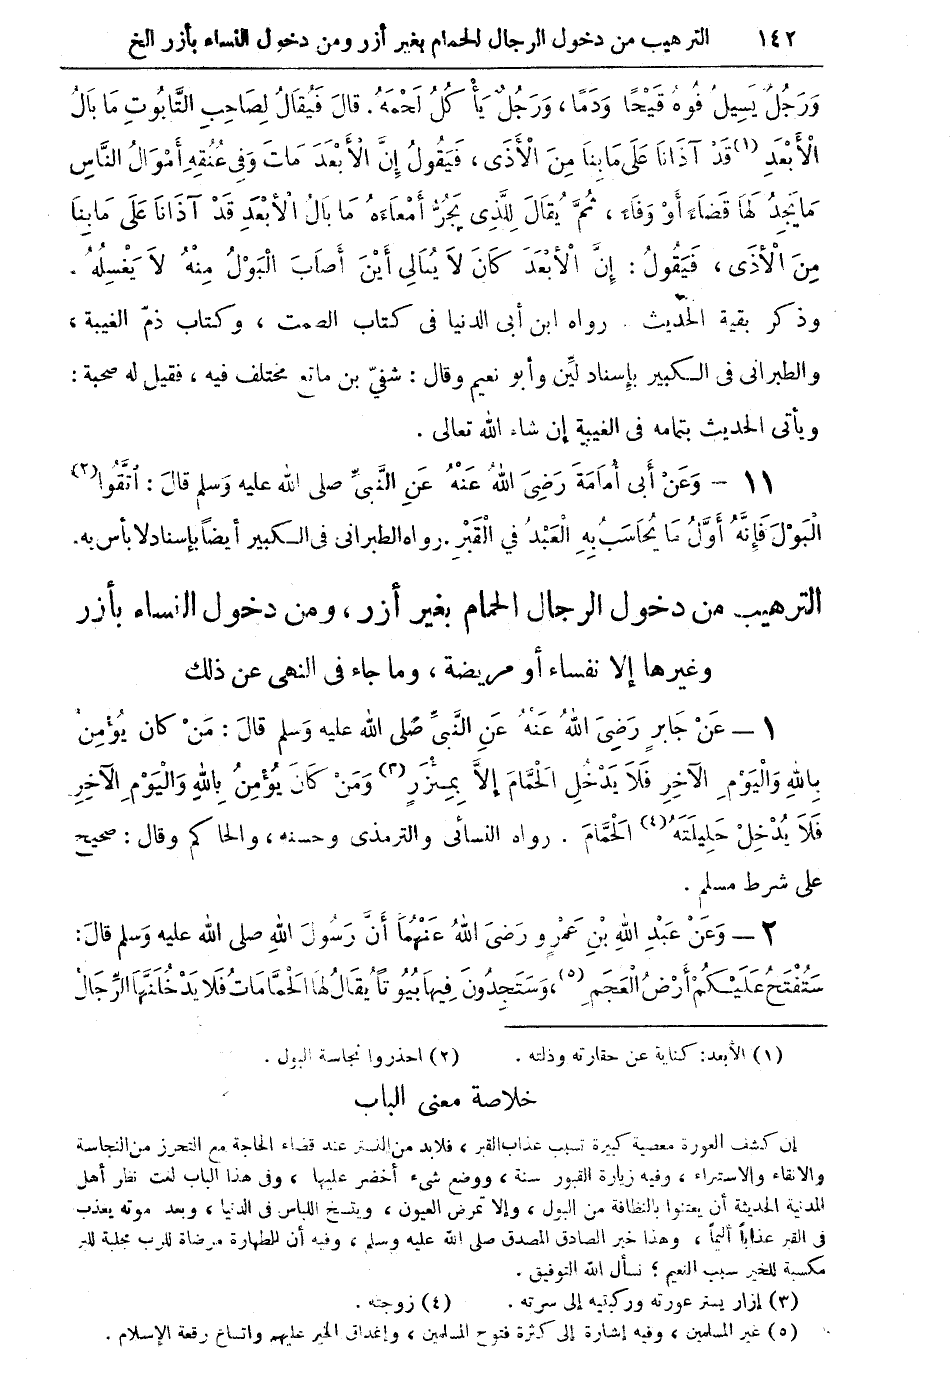 ١٤٢ الترهيب من دخول الرجال الحمام بغير أزر ومن دخول النساء بأزر الخ
وَرَجُلٌ يَسِيلُ فُوهُ قَيْحًا وَدَمًا، وَرَجُلٌ يَأْكُلُ لَحْمَهُ. قالَ فَيُقَالُ لِصَاحِبِ التَّابُوتِ مَا بَالُ
الْأَبْعَدِ (١) قَدْ آذَانَا عَلَى مَا بِنَا مِنَ الْأَذَى، فَيَقُولُ إِنَّ الْأَبْعَدَ مَاتَ وَفِى عُنُقِهِ أَمْوَالُ النَّاسِ
مَا يَجِدُ لَهَا قَضَاءً أَوْ وَفَاءً، ثُمَّ يُقَالَ لِلَّذِى يَجُرُّ أَمْعَاءَهُ مَا بَالُ الْأَبْعَدِ قَدْ آذَانَا عَلَى مَا بِنَا
مِنَ الْأَذَى، فَيَقُولُ: إِنَّ الْأَبْعَدَ كَانَ لاَ يُبَالِى أَيْنَ أَصَابَ الْبَوْلُ مِنْهُ لاَ يَغْسِلُهُ.
وذكر بقية الحديث. رواه ابن أبى الدنيا فى كتاب الصمت، وكتاب ذمّ الغيبة،
والطبرانى فى الكبير بإسناد ليِّن وأبو نعيم وقال: شفىّ بن ماتع مختلف فيه، فقيل له صحبة:
ويأتى الحديث بتمامه فى الغيبة إن شاء الله تعالى.
١١ - وَعَنْ أَبى أُمَامَةَ رَضِىَ اللهُ عَنْهُ عَنِ النَّبِىِّ صلى الله عليه وَسلم قالَ: اتَّقُوا (٢)
الْبَوْلَ فَإِنَّهُ أَوَّلُ مَا يُحَاسَبُ بِهِ الْعَبْدُ فِي الْقَبْرِ. رواه الطبرانى فى الكبير أيضاً بإسناد لا بأس به.
الترهيب من دخول الرجال الحمام بغير أزر، ومن دخول النساء بأزر
وغيرها إلا نفساء أو مريضة، وما جاء فى النهى عن ذلك
١ — عَنْ جَابِرٍ رَضِىَ اللهُ عَنْهُ عَنِ النَّبِىِّ صَلى الله عليه وَسلم قالَ: مَنْ كان يُؤْمِنُ
بِاللهِ وَالْيَوْمِ الآخِرِ فَلاَ يَدْخُلِ الْحَمَّامَ إِلاَّ بِمِئْزَرٍ (٣) وَمَنْ كَانَ يُؤْمِنُ بِاللهِ وَالْيَوْمِ الآخِرِ
فَلاَ يُدْخِلْ حَلِيلَتَهُ (٤) الْحَمَّامَ. رواه النسائى والترمذى وحسنه، والحاكم وقال: صحيح
على شرط مسلم.
٢ — وَعَنْ عَبْدِ اللهِ بْنِ عَمْرٍو رَضِىَ اللهُ عَنْهُمَا أَنَّ رَسُولَ اللهِ صلى الله عليه وَسلم قالَ:
سَتُفْتَحُ عَلَيْكُمْ أَرْضُ الْعَجَمِ (٥)، وَسَتَجِدُونَ فِيهَا بُيُوتًا يُقَالُ لَهَا الْحَمَّامَاتُ فَلاَ يَدْخُلَنَّهَا الرِّجَالُ
(١) الأبعد: كناية عن حقارته وذلته. (٢) احذروا نجاسة البول.
خلاصة معنى الباب
إن كشف العورة معصية كبيرة تسبب عذاب القبر، فلابد من التستر عند قضاء الحاجة مع التحرز من النجاسة
والانقاء والاستبراء، وفيه زيارة القبور سنة، ووضع شىء أخضر عليها، وفى هذا الباب لفت نظار أهل
المدنية الحديثة أن يعتنوا بالنظافة من البول، وإلا تمرض العيون، ويتسخ اللباس فى الدنيا، وبعد موته يعذب
فى القبر عذاباً أليماً، وهذا خبر الصادق المصدق صلى الله عليه وسلم، وفيه أن للطهارة مرضاة للرب مجلبة للبر
مكسبة للخير سبب النعيم؛ نسأل الله التوفيق.
(٣) إزار يستر عورته وركبتيه إلى سرته. (٤) زوجته.
(٥) غير المسلمين، وفيه إشارة إلى كثرة فتوح المسلمين، وإغداق الخير عليهم واتساع رقعة الإسلام.